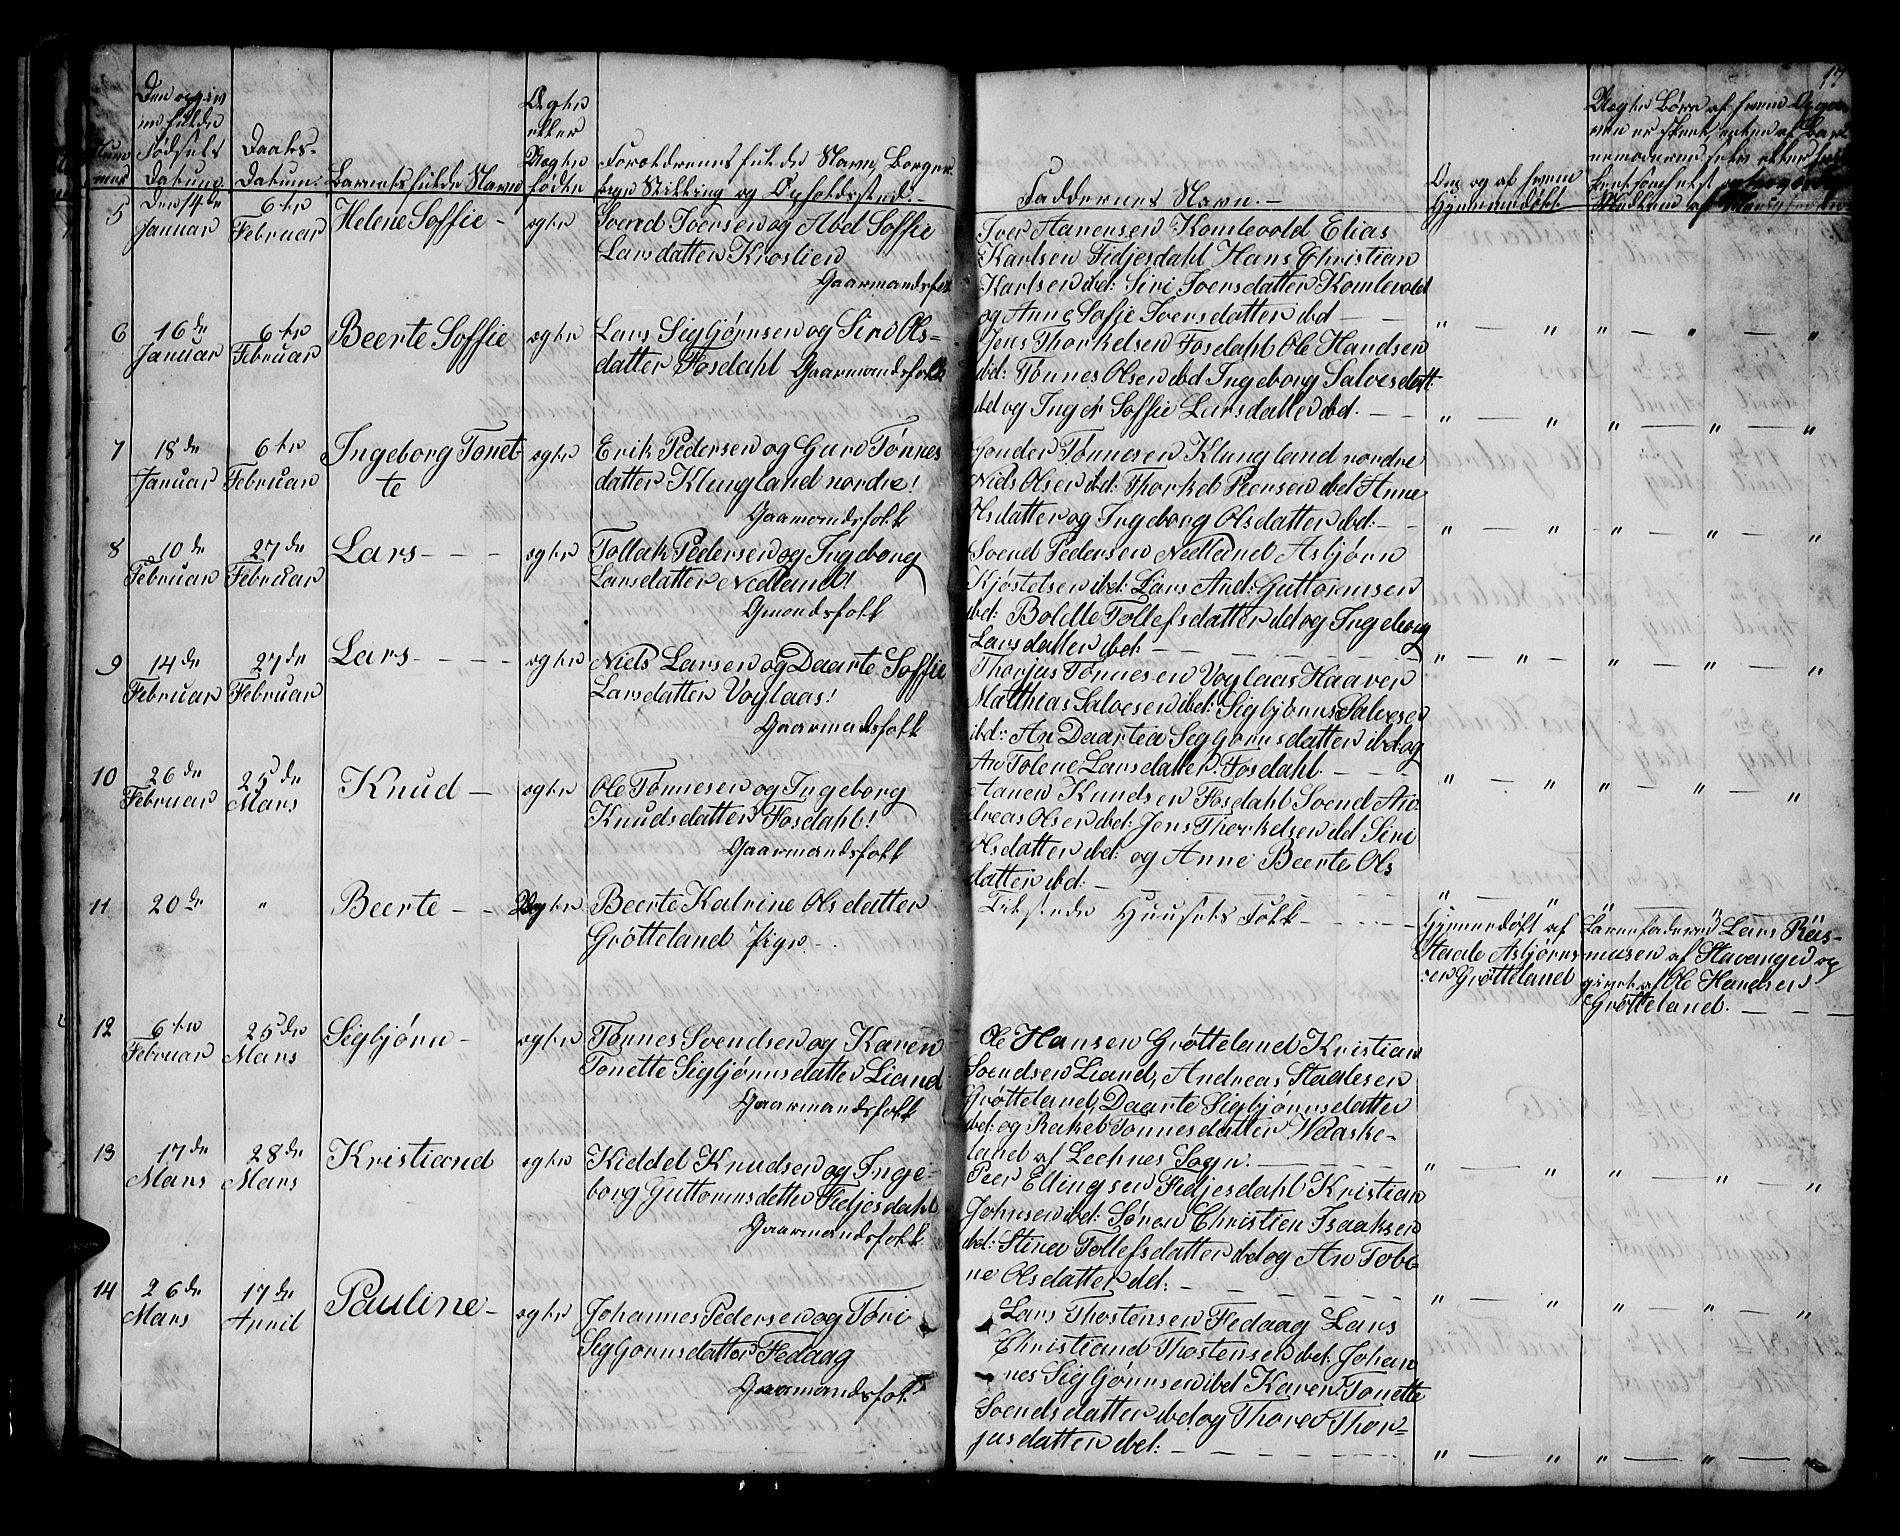 17
Num
mer
Den opgiv
ne fulde
Fødsels
Datum
Daabs-
Datum:
Barnets fulde Navn
Ægte
eller
Uægte
fødte
Forældrenes fulde Navn Borger
lige Stilling og Opholdssted.-
Faddernes Navn.-
Om og af hvem
Hjemmedøbt.
Uægte Børn af hvem Opgav
en er skeet, enten af Bar
nemoderen selv eller
5
Den 14 de
Januar
6 te
Februar
Helene Soffie -
ægte
Svend Iversen og Abel Soffie
Larsdatter Kroslien
Gaarmandsfolk
Iver Aanensen Komlevold Elias
Karlsen Fidjesdahl Hans Christian
Karlsen ibd: Siri Iversdatter Komlevold
og Anne Sofie Iversdatter ibd - -
6
16 de
Januar
6 te
Februar
Beerte Soffie
ægte
Lars Sigbjørnsen og Siri Ols-
datter Fosdahl Gaarmandsfolk
Jens Thorkelsen Fosdahl Ole Handsen
ibd: Tønnes Olsen ibd Ingeborg Salvesdatt:
ibd og Inger Soffie Larsdatter ibd. - -
7
18 de
Januar
6 te
Februar
Ingeborg Tonet-
te
ægte
Erik Pedersen og Guro Tønnes
datter Klungland nordre!
Gaarmandsfolk
Gunder Tønnesen Klungland nordre
Niels Olsen ibd: Thorkel Peersen ibd Anne
Olsdatter og Ingeborg Olsdatter ibd: - -
8
10 de
Februar
27 de
Februar
Lars - - -
ægte
Tollak Pedersen og Ingeborg
Larsdatter Nedland!
Gmandsfolk
Svend Pedersen Nedland Asbjørn
Kjøstelsen ibd: Lars And: Guttormsen
ibd: Bolette Tollefsdatter ibd og Ingeborg
Larsdatter ibd: - - -
9
14 de
Februar
27 de
Februar
Lars - - - -
ægte
Niels Larsen og Daarte Soffie
Larsdatter Voglaas!
Gaarmandsfolk
Thorjus Tønnesen Voglaas Haaver
Matthias Salvesen ibd: Sigbjørn Salvesen
ibd: An Daartea Sigbjørnsdatter ibd og
An Tolene Larsdatter Fosdahl. - - -
10
26 de
Februar
25 de
Mars
Knud -
ægte
Ole Tønnesen og Ingeborg
Knudsdatter Fosdahl!
Gaarmandsfolk
Aanen Knudsen Fosdahl Svend An
dreas Olsen ibd: Jens Thorkelsen ibd Siri
Olsdatter ibd: og Anne Beerte Ols
datter ibd: -
11
20 de
"
Beerte - -
Uægte
Beerte Katrine Olsdatter
Grøtteland Pige -
Tilstede Huusets Folk - - - -
Hjemmedøbt af
Staale Asbjørns-
sen Grøtteland
Barnefaderen Lars Ras-
musen af Stavanger og
givet af Ole Handsen
Grøtteland. - -
12
6 te
Februar
25 de
Mars
Sigbjørn -
ægte
Tønnes Svendsen og Karen
Tonette Sigbjørnsdatter Liand
Gaarmandsfolk
Ole Hansen Grøtteland Kristian
Svendsen Liand, Andreas Staalesen
Grøtteland, Daarte Sigbjørnsdatter
ibd: og Rakel Tønnesdatter Waaske-
land af Lechnes Sogn. - - -
13
17 de
Mars
28 de
Mars
Kristiand
ægte
Kiddel Knudsen og Inge-
borg Guttormsdatter Fidjesdahl
Gaarmandsfolk
Peer Ellingsen Fidjesdahl Kristian
Johnsen ibd: Søren Christien Isaaksen
ibd: Stina Tollefsdatter ibd og An Tobi-
ne Olsdatter ibd: - - -
14
26 de
Mars
17 de
April
Pauline -
ægte
Johannes Pedersen og Tori
Sigbjørnsdatter Fedaag
Gaarmandsfolk
Lars Thostensen Fedaag Lars
Christiand Thostensen ibd: Johan
nes Sigbjørnsen ibd Karen Tonette
Svendsdatter ibd og Thore Thor=
jusdatter ibd: - - -